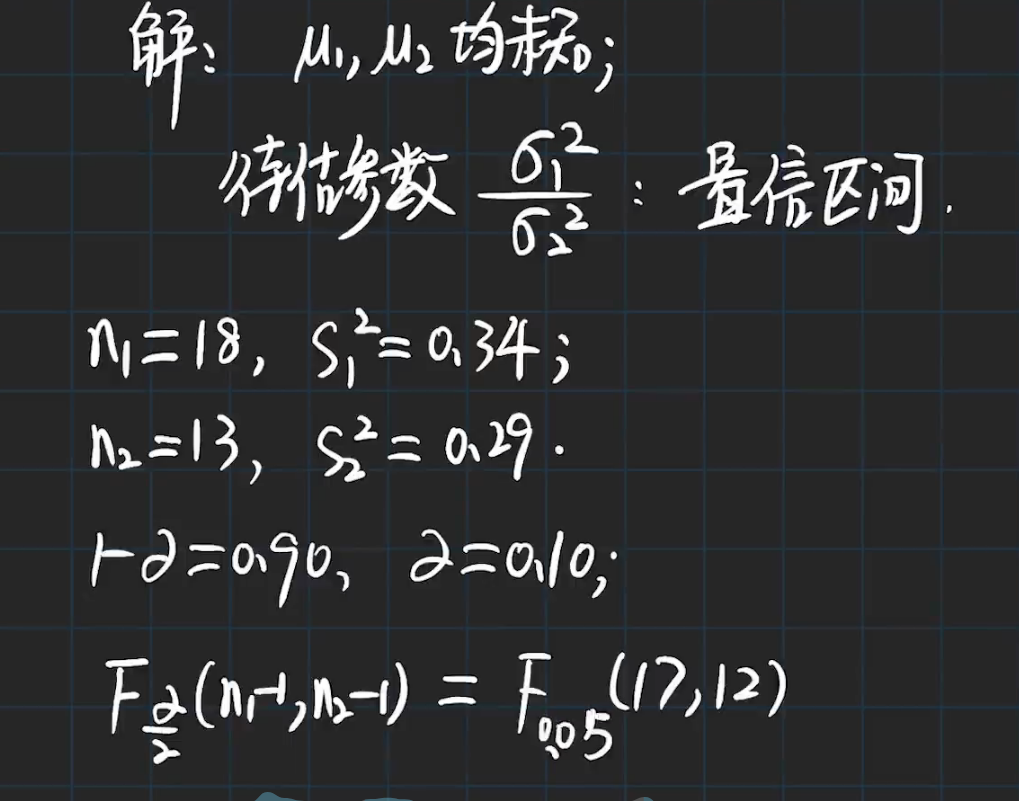 解: μ₁, μ₂ 均未知;
待估参数 σ₁²/σ₂² : 置信区间.
n₁=18, S₁²=0.34;
n₂=13, S₂²=0.29.
1-α=0.90, α=0.10;
F_{α/2}(n₁-1, n₂-1) = F_{0.05}(17,12)